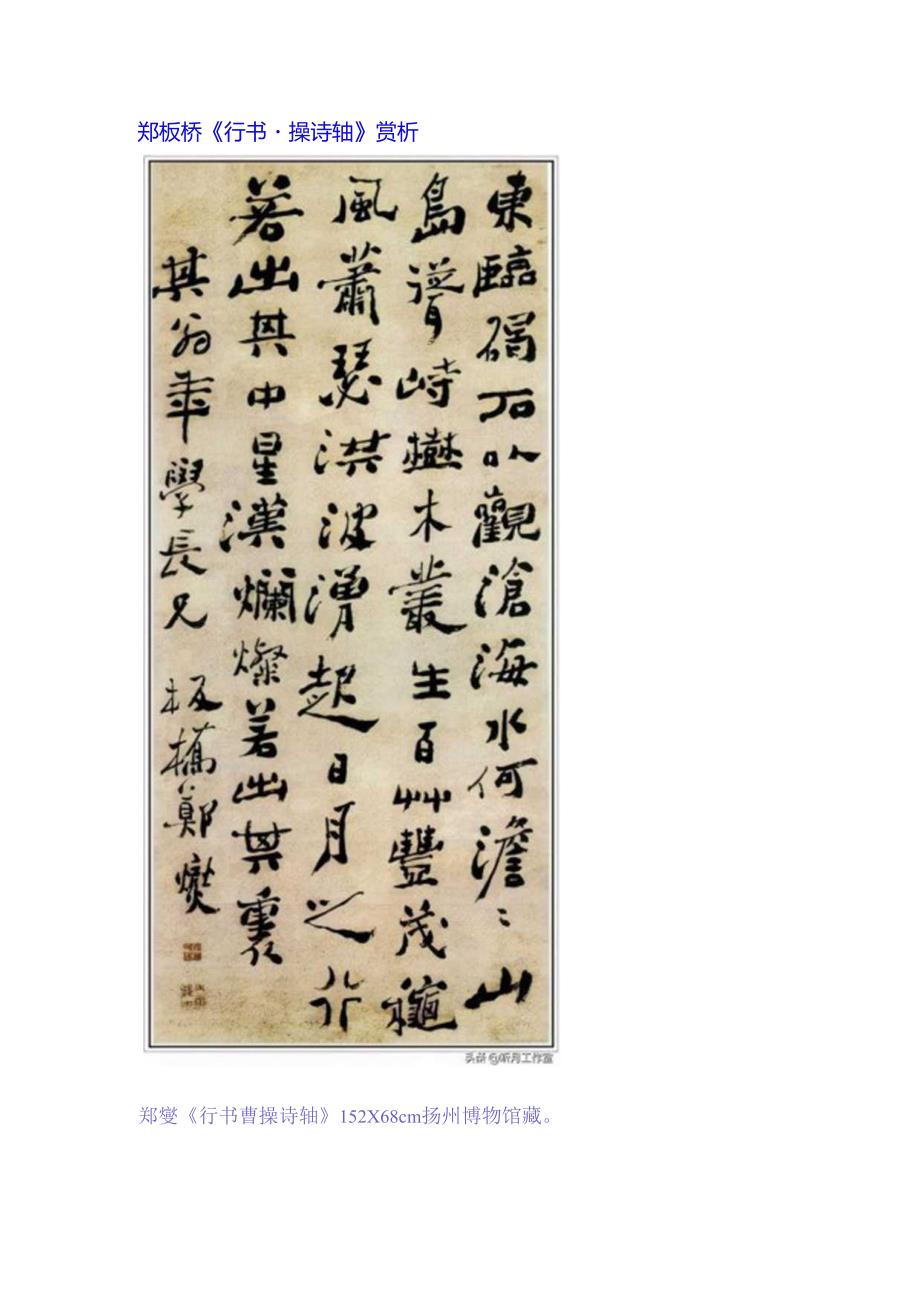 郑板桥《行书·操诗轴》赏析
東臨碣石以觀滄海水何澹〻山
島竦峙樹木叢生百艸豐茂龝
風蕭瑟洪波湧起日月之行
若出其中星漢爛燦若出其裏
其翁年學長兄 板橋鄭燮
头条@昕月工作室
郑燮《行书曹操诗轴》152X68cm扬州博物馆藏。